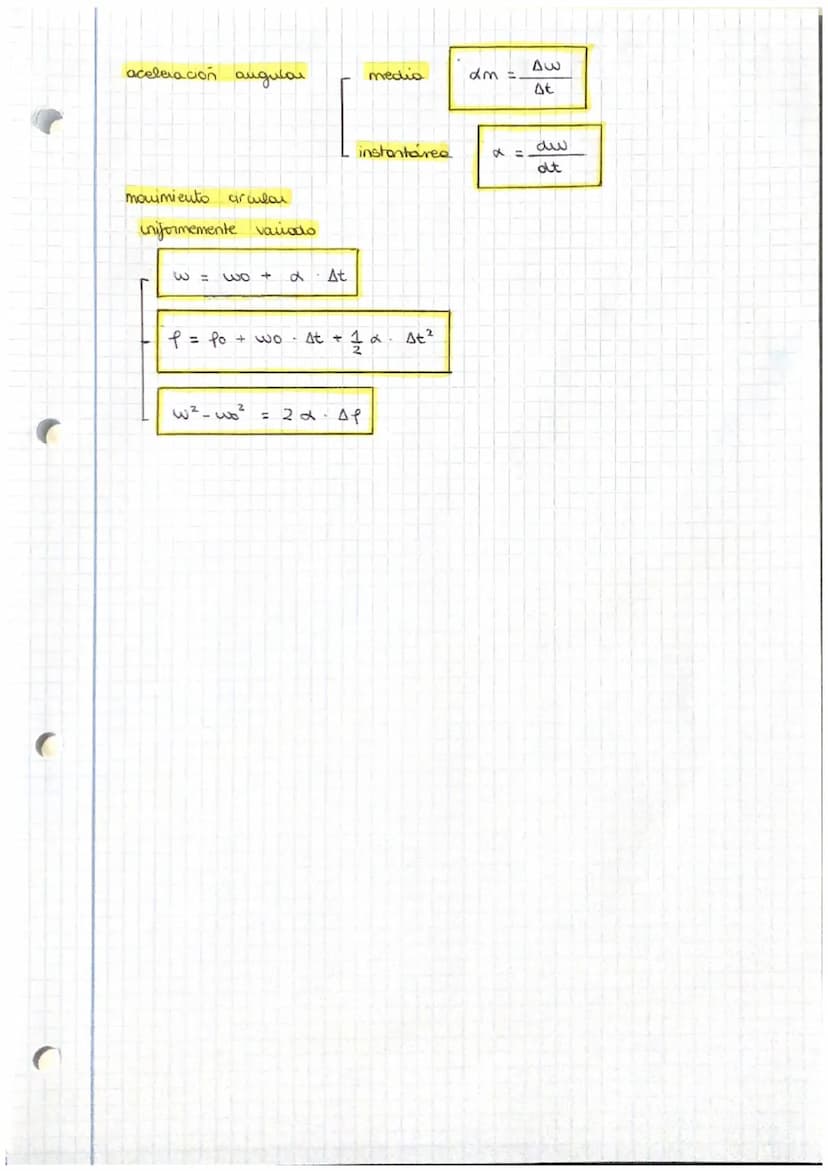 aceleración angular
media αm = Δω / Δt
instantánea α = dω / dt
movimiento circular
uniformemente variado
ω = ω0 + α · Δt
φ = φ0 + ω0 · Δt + 1/2 α · Δt²
ω² - ω0² = 2 α · Δφ